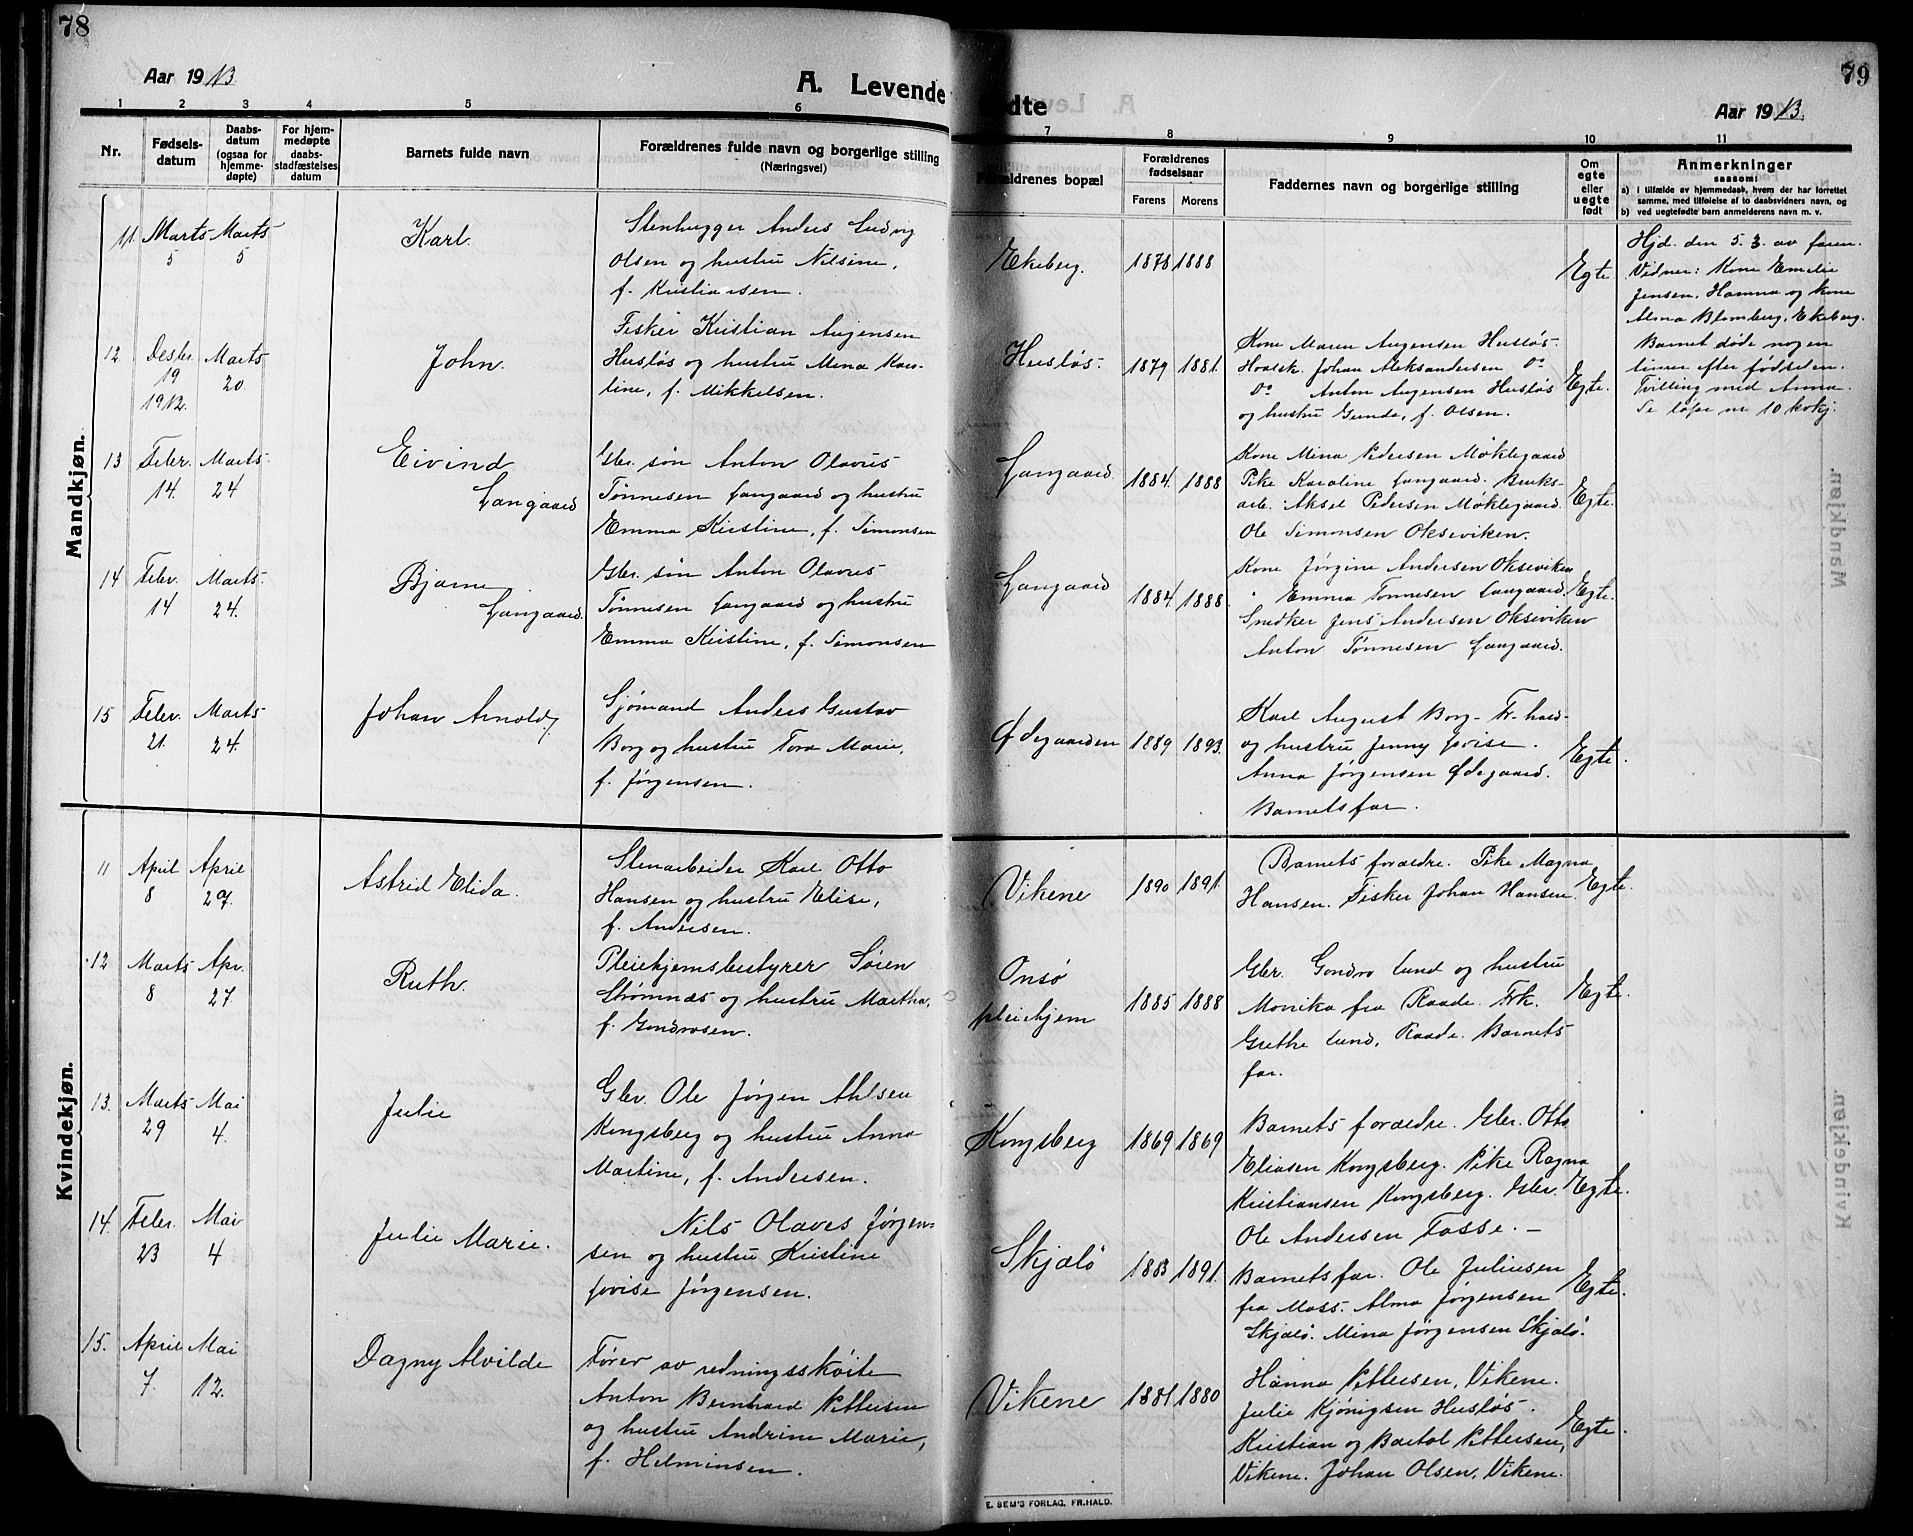 78
Aar 1913
A. Levende
1 2 3 4 5 6
Nr.
Fødsels-
datum
Daabs-
datum
(ogsaa for
hjemme-
døpte)
For hjem-
medøpte
daabs-
stadfæstelses
datum
Barnets fulde navn
Forældrenes fulde navn og borgerlige stilling
(Næringsvei)
Mandkjøn.
11. Marts 5 Marts 5
Karl.
Stenhugger Anders Ludvig
Olsen og hustru Nilsine,
f. Kristiansen.
12 Desbr. 19 1912. Marts 20
John.
Fisker Kristian Augensen
Husløs og hustru Mina Karo-
line, f. Mikkelsen.
13 Febr. 14. Marts 24
Eivind
Langaard
Gbr. søn Anton Olavus
Tønnesen Langaard og hustru
Emma Kristine, f. Simonsen
14 Febr. 14 Marts 24.
Bjarne
Langaard.
Gbr. søn Anton Olavus
Tønnesen Langaard og hustru
Emma Kristine, f. Simonsen
15 Febr. 21. Marts 24.
Johan Arnold
Sjømand Anders Gustav
Borg og hustru Tora Marie,
f. Jørgensen.
Kvindekjøn.
11 April 8 April 27.
Astrid Elida.
Stenarbeider Karl Otto
Hansen og hustru Elise,
f. Andersen.
12 Marts 8 Apr. 27
Ruth.
Pleiehjemsbestyrer Søren
Strømnæs og hustru Martha,
f. Gundrosen.
13. Marts 29 Mai 4.
Julie
Gbr. Ole Jørgen Ahlsen
Kongsberg og hustru Anna
Martine, f. Andersen.
14. Febr. 23 Mai 4
Julie Marie.
Nils Olaves Jørgen-
sen og hustru Kristine
Lovise Jørgensen.
15. April 7. Mai 12.
Dagny Alvilde
Fører av redningsskøite
Anton Bernhard Pettersen
og hustru Andrine Marie,
f. Helminsen.
79
ødte
Aar 1913.
7 8 9 10 11
Forældrenes bopæl
Forældrenes
fødselsaar
Farens Morens
Faddernes navn og borgerlige stilling
Om
egte
eller
uegte
født
Anmerkninger
saasom:
a) i tilfælde av hjemmedaab, hvem der har forrettet
samme, med tilføielse af to daabsvidners navn, og
b) ved uegtefødte barn anmelderens navn m. v.
Ekeberg. 1878 1888
Egte
Hjd. den 5. 3. av faren.
Vidner: Kone Emelie
Jensen, Hamna og kone
Alma Blomberg, Ekeberg.
Barnet døde nogen
timer efter fødselen.
Husløs. 1879 1881.
Kone Maren Augensen Husløs.
Johan Aleksandersen Do
Do Anton Augensen Husløs
og hustru Gunda, f. Olsen.
Egte.
Tvilling med Anna.
Se løpe nr 10 kvkj.
Langaard 1884. 1888
Kone Mina Pedersen Møklegaard
Pike Karoline Langaard. Bruks-
arb. Aksel Pedersen Møklegaard.
Ole Simonsen Okseviken.
Egte.
Langaard 1884. 1888.
Kone Jørgine Andersen Okseviken
" Emma Tønnesen Langaard.
Snedker Jens Andersen Okseviken
Anton Tønnesen Langaard.
Egte.
Ødegaarden 1889 1893.
Karl August Borg - Fr.hald-
og hustru Jenny Lovise.
Anna Jørgensen Ødegaard.
Barnets far.
Egte.
Vikene 1890 1891.
Barnets forældre. Pike Magna
Hansen. Fisker Johan Hansen.
Egte.
Onsø
pleiehjem 1885 1888
Gbr. Gundro Lund og hustru
Monika fra Raade. Frk.
Grethe Lund, Raade. Barnets
far.
Egte.
Kongsberg 1869 1869
Barnets forældre. Gbr. Otto
Eliasen Kongsberg. Pike Ragna
Kristiansen Kongsberg. Gbr.
Ole Andersen Fosse. —
Egte.
Skjælø 1883 1891.
Barnets far. Ole Juliusen
fra Moss. Alma Jørgensen
Skjælø. Mina Jørgensen Skjælø.
Egte.
Vikene 1881 1880
Hanna Pettersen, Vikene.
Julie Kjønigsen Husløs.
Kristian og Bartol Pettersen,
Vikene. Johan Olsen, Vikene.
Egte.
E. SEM'S FORLAG, FR.HALD.